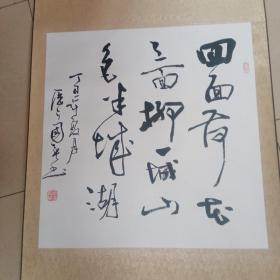 四面荷花
三面柳一城山
色半城湖
丁酉年月
国书